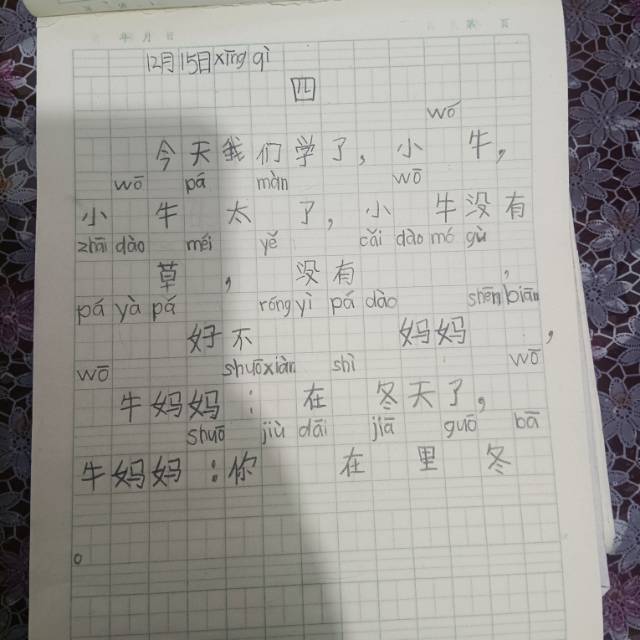 年 月 日
12月15日xīng qì
四
wō
今天我们学了,小 牛,
wō pá màn wō
小 牛太 了,小 牛没有
zhāi dào méi yě cǎi dào mó gù
草 , 没有 ,
pá yà pá róng yì pá dào shēn biān
好不 妈妈,
wō shuō xiàn shì wō
牛妈妈: 在 冬天了,
shuō jiù dāi jiā guō bā
牛妈妈:你 在 里 冬
。